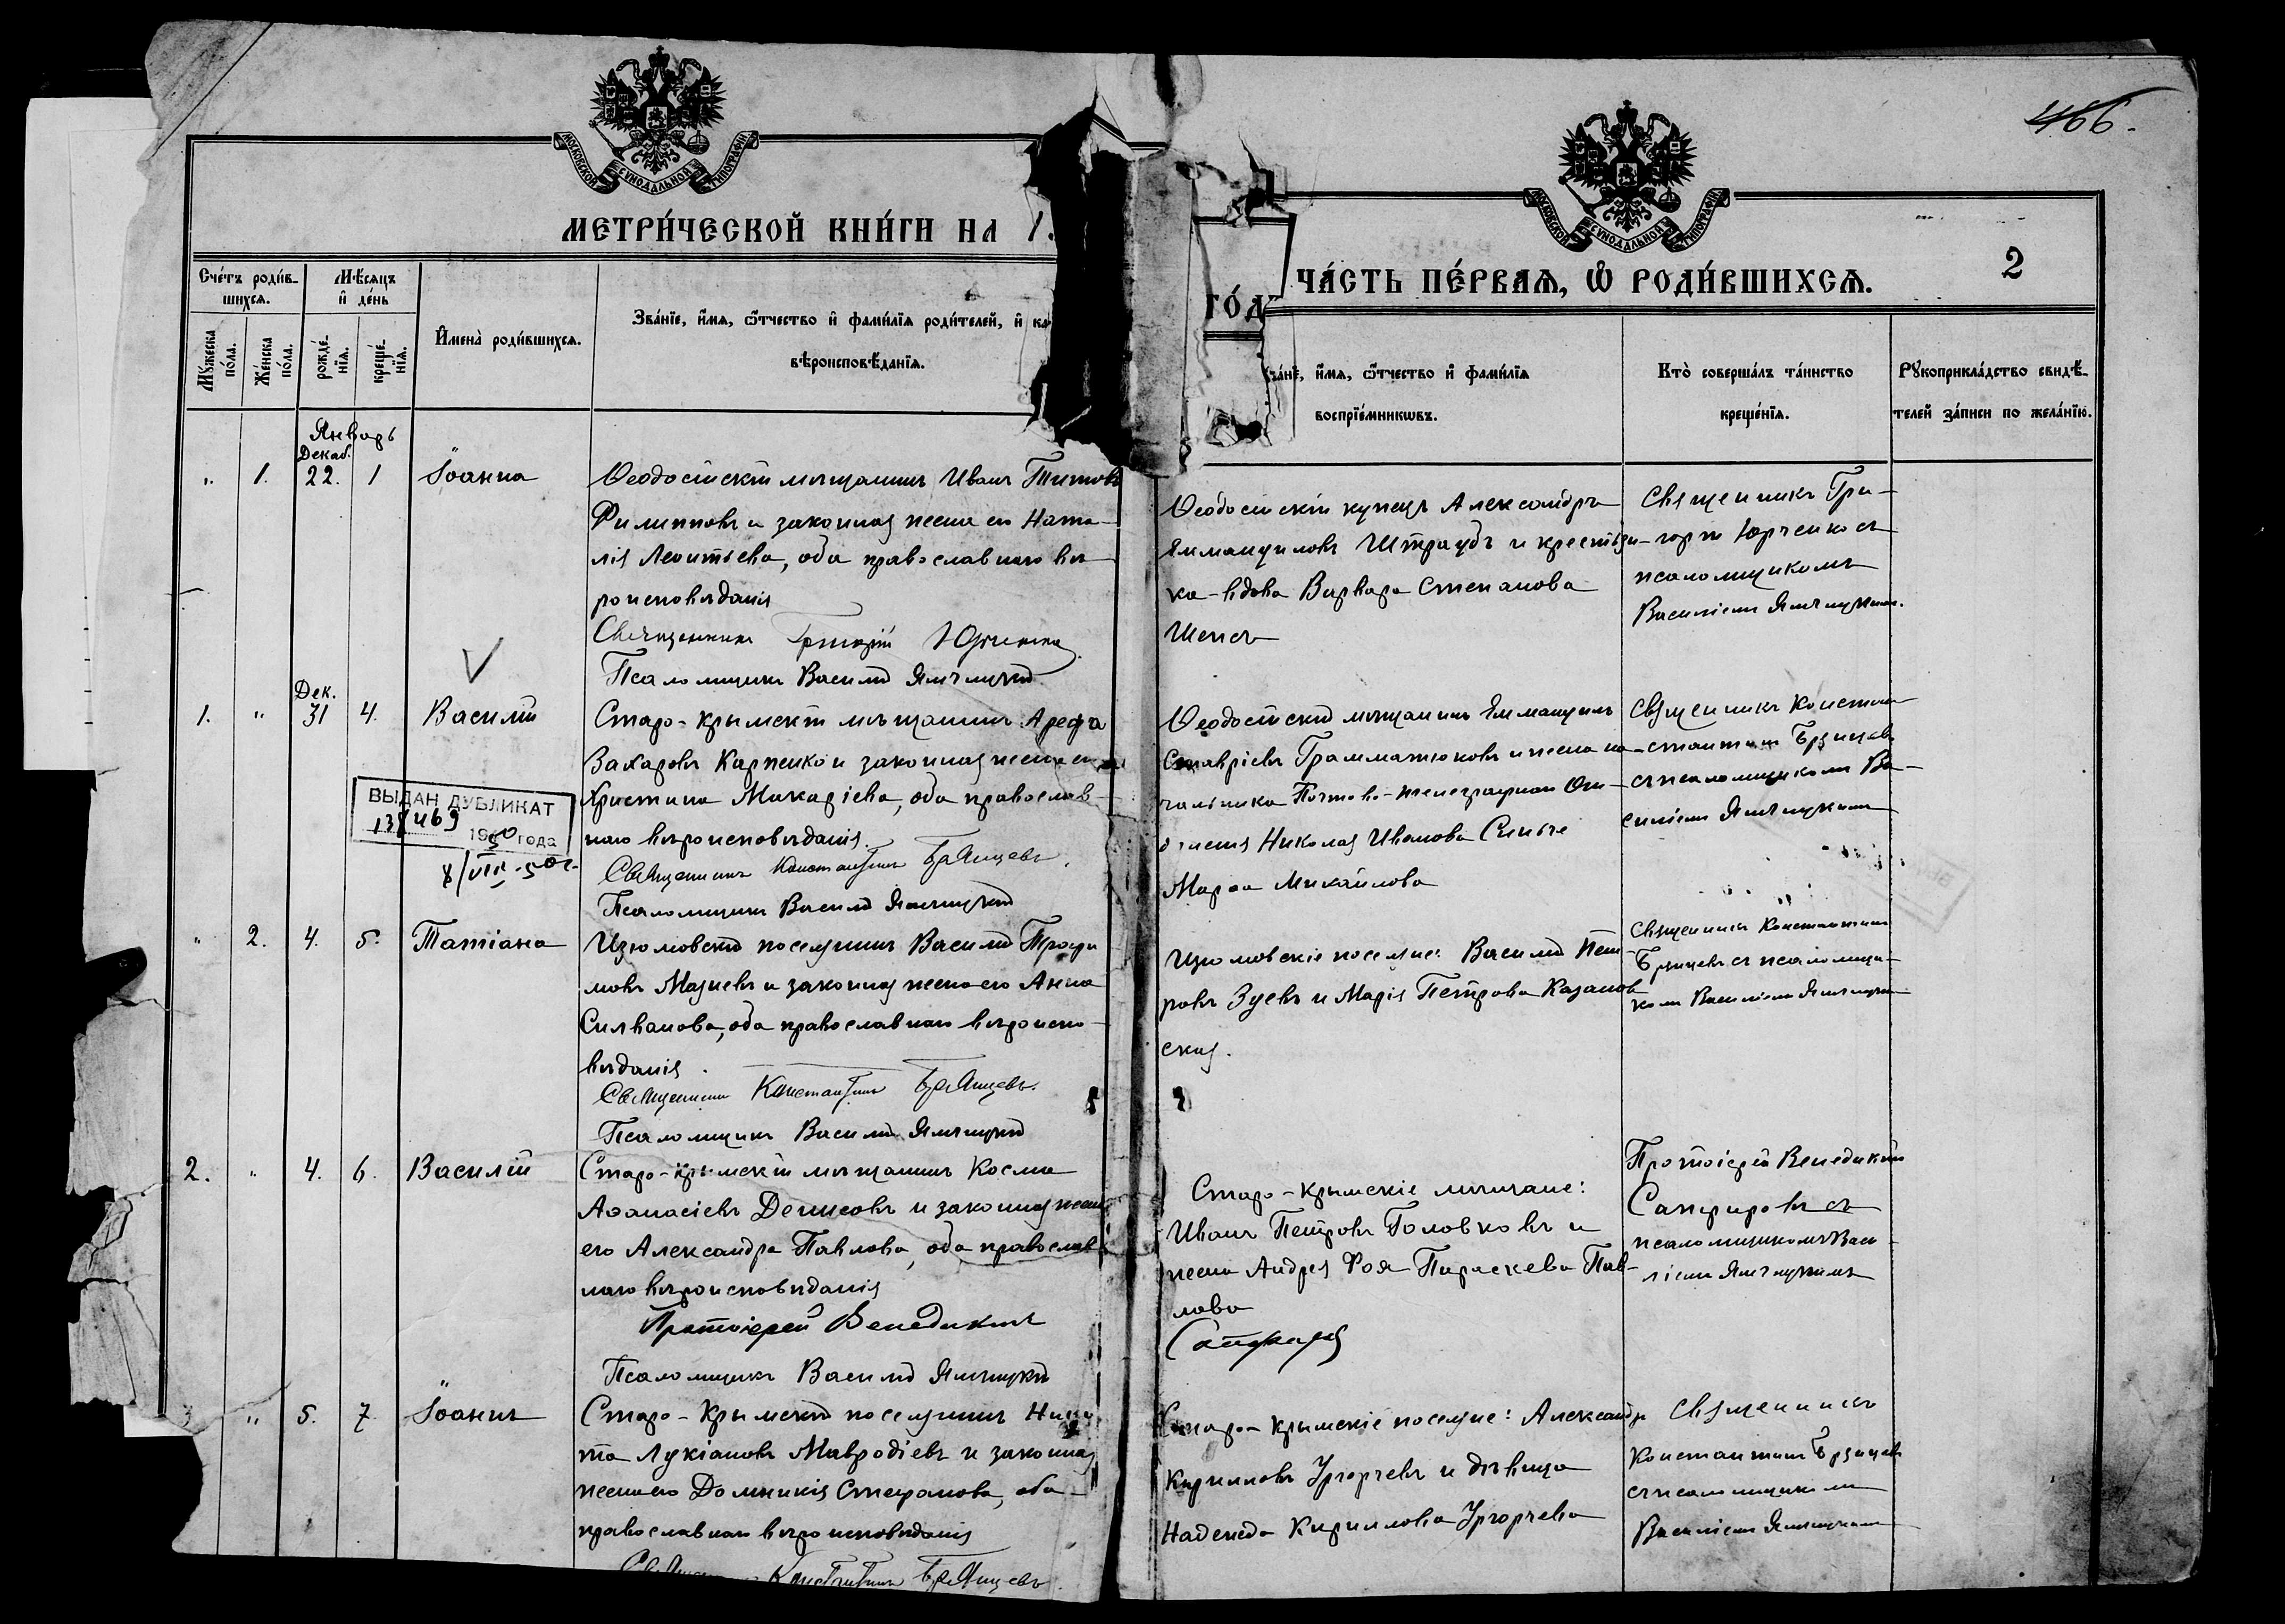 466.
МОСКОВСКОЙ СѴНОДАЛЬНОЙ ТИПОГРАФІИ
МОСКОВСКОЙ СѴНОДАЛЬНОЙ ТИПОГРАФІИ
МЕТРИ́ЧЕСКОЙ КНИ́ГИ НА 1
ГО́Д
ЧА́СТЬ ПЕ́РВАѦ, Ѡ҆ РОДИ́ВШИХСѦ.
2
Сче́тъ роди́в-
шихсѧ.
Мѣ́сѧцъ
и҆ де́нь
Мꙋ́жеска
по́ла.
Же́нска
по́ла.
рожде́-
нїѧ.
креще́-
нїѧ.
И҆мена̀ роди́вшихсѧ.
Зва́нїе, и҆́мѧ, ѻ҆́тчество и҆ фами́лїѧ роди́телей, и҆
вѣроисповѣ́данїѧ.
и҆́мѧ, ѻ҆́тчество и҆ фами́лїѧ
воспрїе́мникѡвъ.
Кто̀ соверша́лъ та́инство
креще́нїѧ.
Рꙋкоприкла́дство свидѣ́-
телей за́писи по жела́нїю.
Январь
Декаб.
" 1. 22. 1 Іоанна
Ѳеодосійскій мѣщанинъ Иванъ Титовъ
Филипповъ и законная жена его Ната-
лія Леонтьева, оба православнаго вѣ-
роисповѣданія
Священникъ Григорій Юрченко
Псаломщикъ Василій
Ѳеодосійскій купецъ Александръ
Эммануиловъ Штраубъ и крестьян-
ка-вдова Варвара Степанова
Священникъ Гри-
горій Юрченко съ
псаломщикомъ
Василіемъ
Дек.
1. " 31 4. Василій
Старо-Крымскій мѣщанинъ Арефа
Захаровъ Карпенко и законная жена его
Христина Макаріева, оба православ-
наго вѣроисповѣданія.
Священникъ Константинъ Брянцевъ.
Псаломщикъ Василій
ВЫДАН ДУБЛИКАТ
1950 года
8/VIII-50г.
Ѳеодосійскій мѣщанинъ Эммануилъ
Ставріевъ Грамматиковъ и жена на-
чальника Почтово-телеграфнаго От-
дѣленія Николая Иванова
Марѳа Михайлова
Священникъ Констан-
тинъ Брянцевъ
съ псаломщикомъ Ва-
силіемъ
" 2. 4. 5. Татіана
Изюмовскій поселянинъ Василій Трофи
мовъ Мазневъ и законная жена его Анна
Силванова, оба православнаго вѣроиспо-
вѣданія.
Священникъ Константинъ Брянцевъ.
Псаломщикъ Василій
Изюмовскіе поселяне: Василій Пет-
ровъ Зуевъ и Марія Петрова Казанов
ская.
Священникъ Константинъ
Брянцевъ съ псаломщи-
комъ Василіемъ
2. " 4. 6. Василій
Старо-Крымскій мѣщанинъ Косма
Аѳанасіевъ Денисовъ и законная жена
его Александра Павлова, оба православ
наго вѣроисповѣданія
Протоіерей Венедиктъ
Псаломщикъ Василій
Старо-Крымскіе мѣщане:
Иванъ Петровъ Головковъ и
жена Андрея Фоя Параскева Пав-
лова
Протоіерей Венедиктъ
Сапфировъ съ
псаломщикомъ Васи-
ліемъ
" 5. 7. Іоаннъ
Старо-Крымскій поселянинъ Ники
та Лукіановъ Мавродіевъ и законная
жена его Домникія Стефанова, оба
православнаго вѣроисповѣданія
Константинъ Брянцевъ.
Старо-Крымскіе поселяне: Александръ
Кирилловъ Угорчевъ и дѣвица
Надежда Кириллова Угорчева
Священникъ
Константинъ Брянцевъ
съ псаломщикомъ
Василіемъ